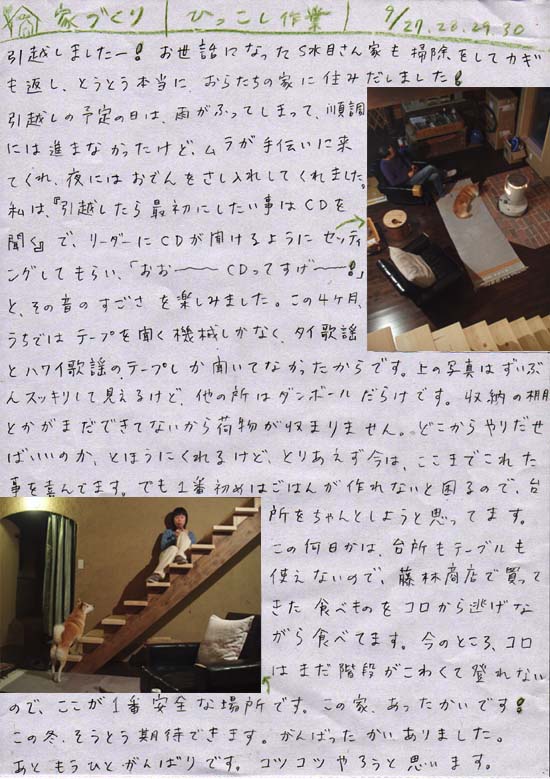 家づくり | ひっこし作業 | 9/27.28.29.30
引越しましたー! お世話になったS木目さん家も掃除をしてカギ
も返し、とうとう本当に、おらたちの家に住みだしました!
引越しの予定の日は、雨がふってしまって、順調
には進まなかったけど、ムラが手伝いに来
てくれ、夜にはおでんをさし入れしてくれました。
私は、『引越したら最初にしたい事はCDを
聞く』で、リーダーにCDが聞けるようにセッティ
ングしてもらい、「おお――CDってすげ――!」
と、その音のすごさを楽しみました。この4ヶ月、
うちではテープを聞く機械しかなく、タイ歌謡
とハワイ歌謡のテープしか聞いてなかったからです。上の写真はずいぶ
んスッキリして見えるけど、他の所はダンボールだらけです。収納の棚
とかがまだできてないから荷物が収まりません。どこからやりだせ
ばいいのか、とほうにくれるけど、とりあえず今は、ここまでこれた
事を喜んでます。でも1番初めはごはんが作れないと困るので、台
所をちゃんとしようと思ってます。
この何日かは、台所もテーブルも
使えないので、藤林商店で買って
きた食べものをコロから逃げな
がら食べてます。今のところ、コロ
はまだ階段がこわくて登れない
ので、ここが1番安全な場所です。この家、あったかいです!
この冬、そうとう期待できます。がんばったかいありました。
あともうひとがんばりです。コツコツやろうと思います。